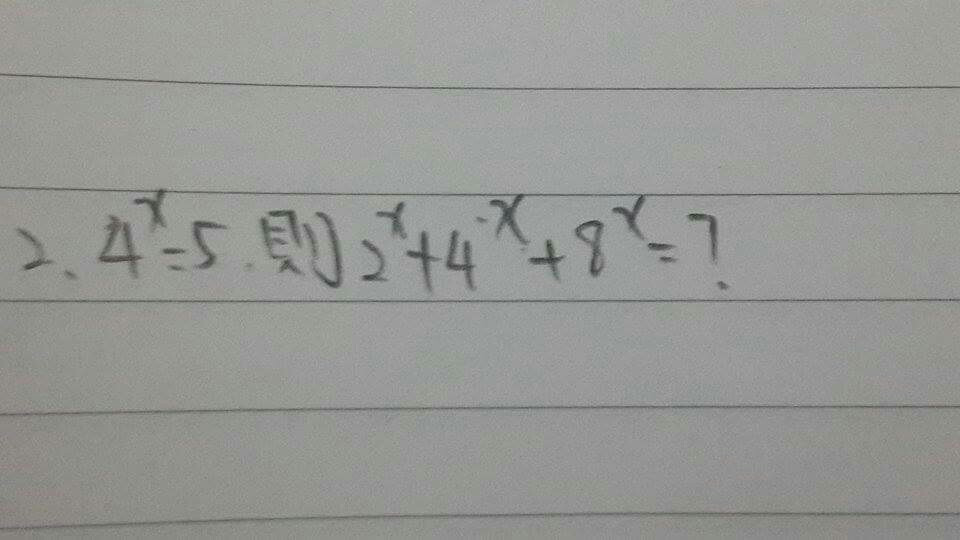 2. 4ˣ=5. 則 2ˣ+4⁻ˣ+8ˣ=?